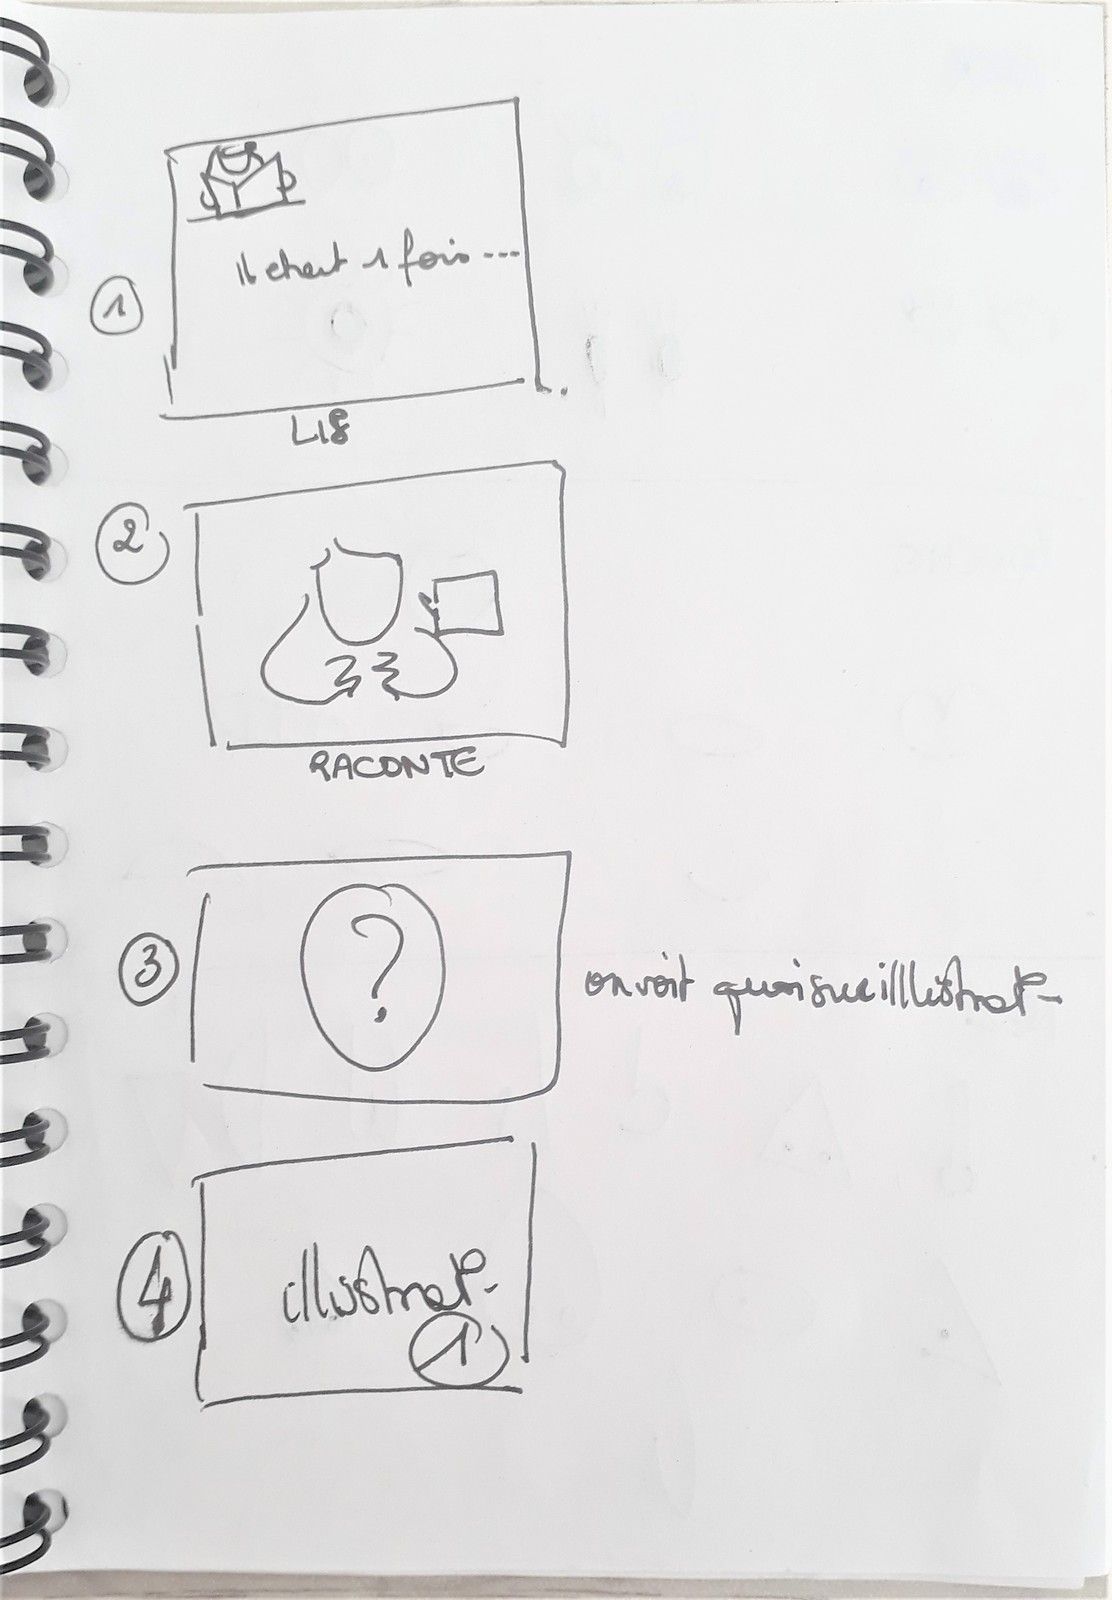 il etait 1 fois ---
1
LIS
2
RACONTE
?
3
on voit quoi sur illlustrat°-
4
illustrat°-
1